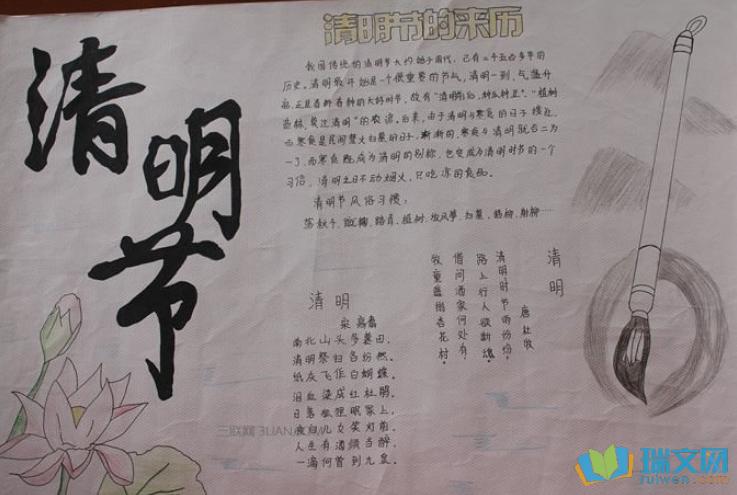 清明节
清明节的来历
我国传统的清明节大约始于周代，已有二千五百多年的
历史。清明最开始是一个很重要的节气，清明一到，气温升
高，正是春耕春种的大好时节，故有“清明前后，种瓜种豆”。“植树
造林，莫过清明”的农谚。后来，由于清明与寒食的日子接近，
而寒食是民间禁火扫墓的日子，渐渐的，寒食与清明就合二为
一了，而寒食既成为清明的别称，也变成为清明时节的一个
习俗，清明之日不动烟火，只吃凉的食品。
清明节风俗习惯：
荡秋千，蹴鞠，踏青，植树，放风筝，扫墓，插柳，射柳……
清明
唐 杜牧
清明时节雨纷纷，
路上行人欲断魂。
借问酒家何处有
牧童遥指杏花村。
清明
宋 高翥
南北山头多墓田，
清明祭扫各纷然。
纸灰飞作白蝴蝶，
泪血染成红杜鹃。
日暮狐狸眠冢上，
夜归儿女笑灯前。
人生有酒须当醉，
一滴何曾到九泉。
三联网 3LIAN
瑞文网
ruiwen.com